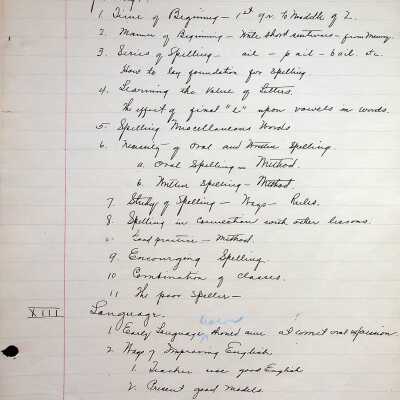 1. Time of Beginning - 1st yr. to Middle of 2.
2. Manner of Beginning - Write short sentences - from memory.
3. Series of Spelling - ail - p ail - b ail. etc.
How to lay foundation for Spelling.
4. Learning the Value of Letters.
The effect of final "e" upon vowels in words.
5. Spelling Miscellaneous Words
6. Necessity of Oral and Written Spelling.
a. Oral Spelling - Method.
b. Written Spelling - Method.
7. Study of Spelling - Ways - Rules.
8. Spelling in connection with other lessons.
Good practice - Method.
9 Encouraging Spelling.
10 Combination of classes.
11 The poor Speller -
XIII Language.
1. Early Language should aim at correct oral expression.
2. Ways of Improving English
1. Teacher use good English
2. Present good models